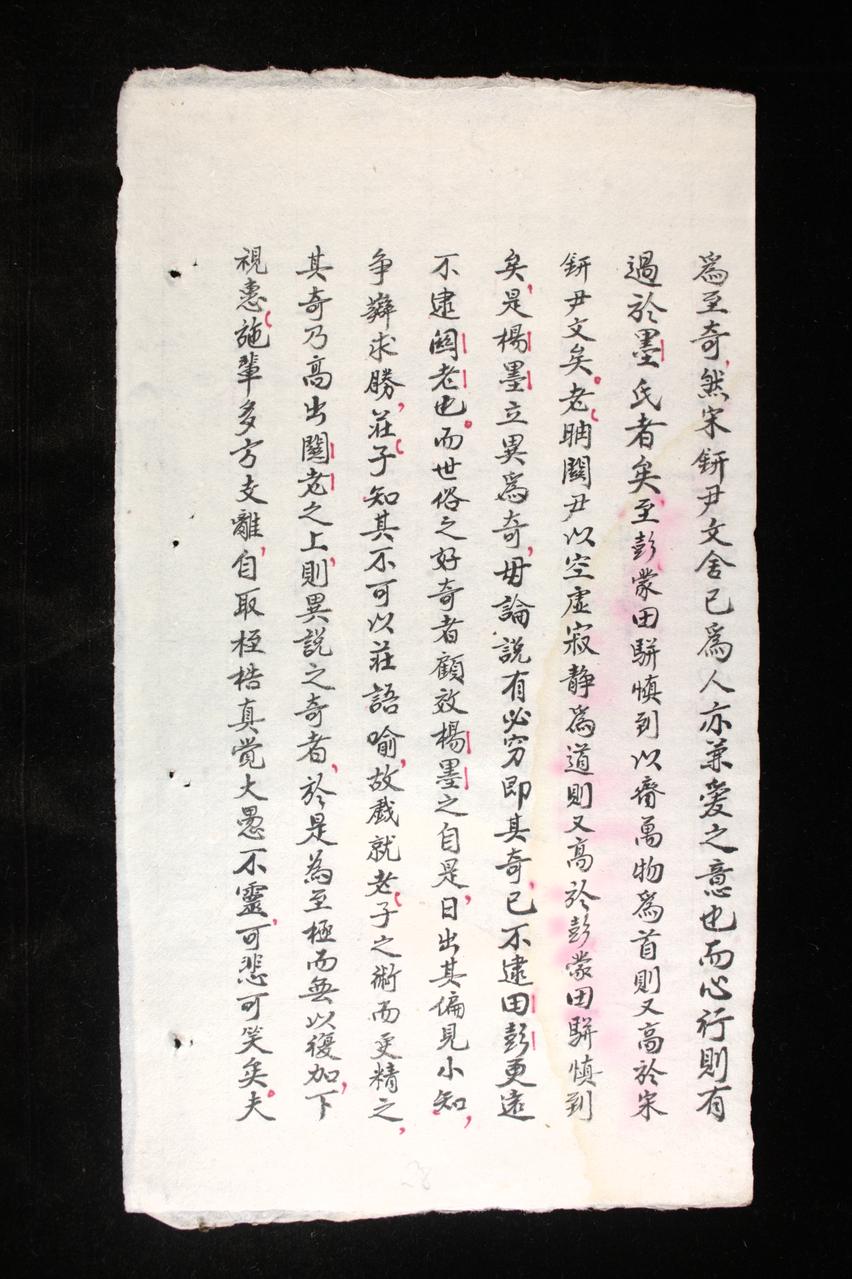 爲至奇然宋鈃尹文舍己爲人亦兼愛之意也而心行則有
過於墨氏者矣至彭蒙田駢慎到以齊萬物爲首則又高於宋
鈃尹文矣老聃關尹以空虛寂静爲道則又高於彭蒙田駢慎到
矣是楊墨立異爲奇毋論說有必穷即其奇已不逮田彭更遠
不逮関老也而世俗之好奇者顧效楊墨之自是日出其偏見小知
争辯求勝莊子知其不可以莊語喻故戲就老子之術而更精之
其奇乃高出關老之上則異說之奇者於是為至極而無以復加下
視惠施輩多方支離自取桎梏真覚大愚不靈可悲可笑矣夫
28